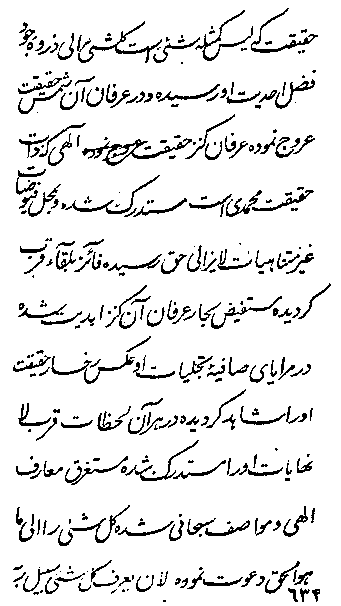 حقیقت که لیس کمثله شئی است کلشئی را الی ذروه جود
فضل احدیت او رسیده و در عرفان آن شمس حقیقت
عروج نموده عرفان کنز حقیقت الهی که ذات
حقیقت محمدی است مستدرک شده و بحل فیوضات
غیر متناهیات لایزالی حق رسیده فائز بلقاء قرب
گردیده مستفیض بحار عرفان آن کنز ابدیت شده
در مرایای صافیهٔ تجلیات او عکس رخسار حقیقت
او را مشاهد گردیده در هر آن لحظات قرب لا
نهایات او را مستدرک شده مستغرق معارف
الهی و مواصف سبحانی شده کل شئی را الی ما
هو الحق دعوت نموده لان یعرف کل شئی سبیل
۶۳۴